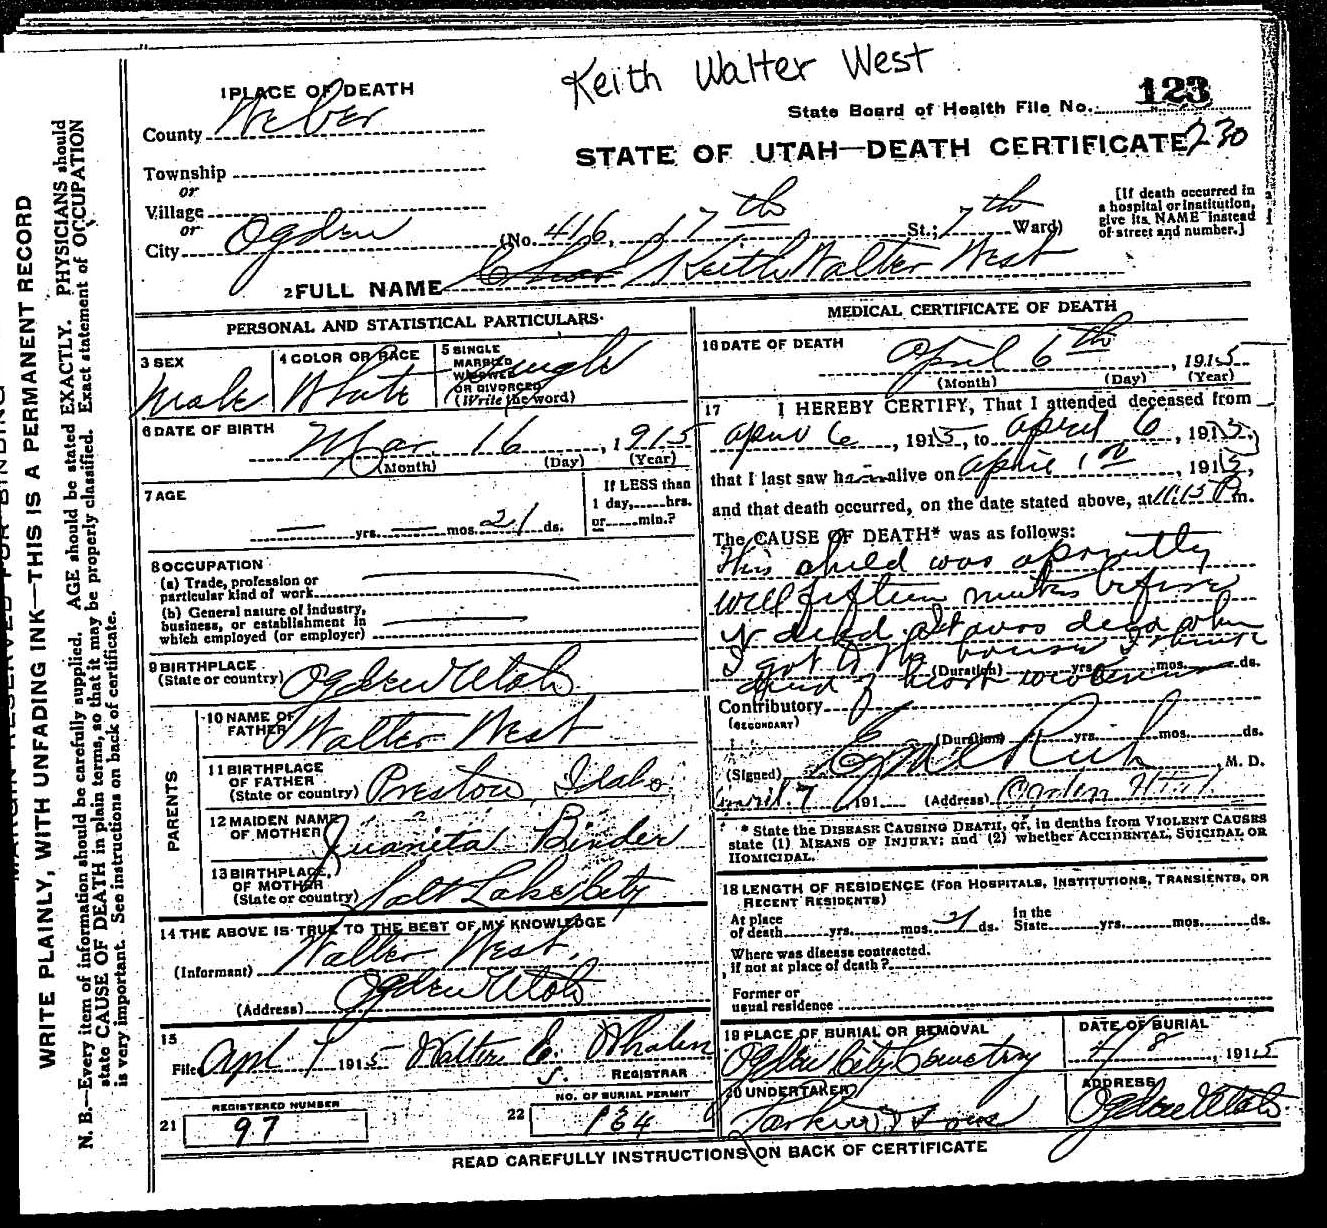 Keith Walter West
1 PLACE OF DEATH
County Weber
State Board of Health File No. 123
230
STATE OF UTAH—DEATH CERTIFICATE
Township
or
Village
or
City Ogden (No. 416, 17th St.; 7th Ward)
[If death occurred in
a hospital or institution,
give its NAME instead
of street and number.]
2 FULL NAME Keith Walter West
PERSONAL AND STATISTICAL PARTICULARS
3 SEX
Male
4 COLOR OR RACE
White
5 SINGLE
MARRIED
WIDOWED
OR DIVORCED
(Write the word)
Single
6 DATE OF BIRTH
Mar. 16, 1915
(Month) (Day) (Year)
7 AGE
— yrs. — mos. 21 ds.
If LESS than
1 day, hrs.
or min.?
8 OCCUPATION
(a) Trade, profession or
particular kind of work
(b) General nature of industry,
business, or establishment in
which employed (or employer)
9 BIRTHPLACE
(State or country) Ogden Utah
PARENTS
10 NAME OF
FATHER Walter West
11 BIRTHPLACE
OF FATHER
(State or country) Preston, Idaho.
12 MAIDEN NAME
OF MOTHER Juanita Binder
13 BIRTHPLACE
OF MOTHER
(State or country) Salt Lake City
14 THE ABOVE IS TRUE TO THE BEST OF MY KNOWLEDGE
(Informant) Walter West.
(Address) Ogden Utah
15
Filed Apl 7 1915 Walter E. Whalen
REGISTRAR
21 REGISTERED NUMBER
97
22 NO. OF BURIAL PERMIT
134
MEDICAL CERTIFICATE OF DEATH
16 DATE OF DEATH
April 6th, 1915
(Month) (Day) (Year)
17 I HEREBY CERTIFY, That I attended deceased from
April 6, 1915, to April 6, 1915,
that I last saw h alive on April 1, 1915,
and that death occurred, on the date stated above, at 11:15 P m.
The CAUSE OF DEATH* was as follows:
This child was aparintly
well fifteen minutes before
it died. It was dead when
I got to the house I think
(Duration) yrs. mos. ds.
died of heart
Contributory
(SECONDARY)
(Duration) yrs. mos. ds.
(Signed) Rich, M. D.
April 7, 191 (Address) Ogden Utah
* State the DISEASE CAUSING DEATH, or, in deaths from VIOLENT CAUSES
state (1) MEANS OF INJURY; and (2) whether ACCIDENTAL, SUICIDAL OR
HOMICIDAL.
18 LENGTH OF RESIDENCE (FOR HOSPITALS, INSTITUTIONS, TRANSIENTS, OR
RECENT RESIDENTS)
At place
of death yrs. mos. 21 ds.
In the
State yrs. mos. ds.
Where was disease contracted,
if not at place of death?
Former or
usual residence
19 PLACE OF BURIAL OR REMOVAL
Ogden City Cemetery
DATE OF BURIAL
4/8, 1915
20 UNDERTAKER
Larkin & Sons
ADDRESS
Ogden Utah
READ CAREFULLY INSTRUCTIONS ON BACK OF CERTIFICATE
MARGIN RESERVED FOR BINDING
WRITE PLAINLY, WITH UNFADING INK—THIS IS A PERMANENT RECORD
N. B.—Every item of information should be carefully supplied. AGE should be stated EXACTLY. PHYSICIANS should
state CAUSE OF DEATH in plain terms, so that it may be properly classified. Exact statement of OCCUPATION
is very important. See instructions on back of certificate.